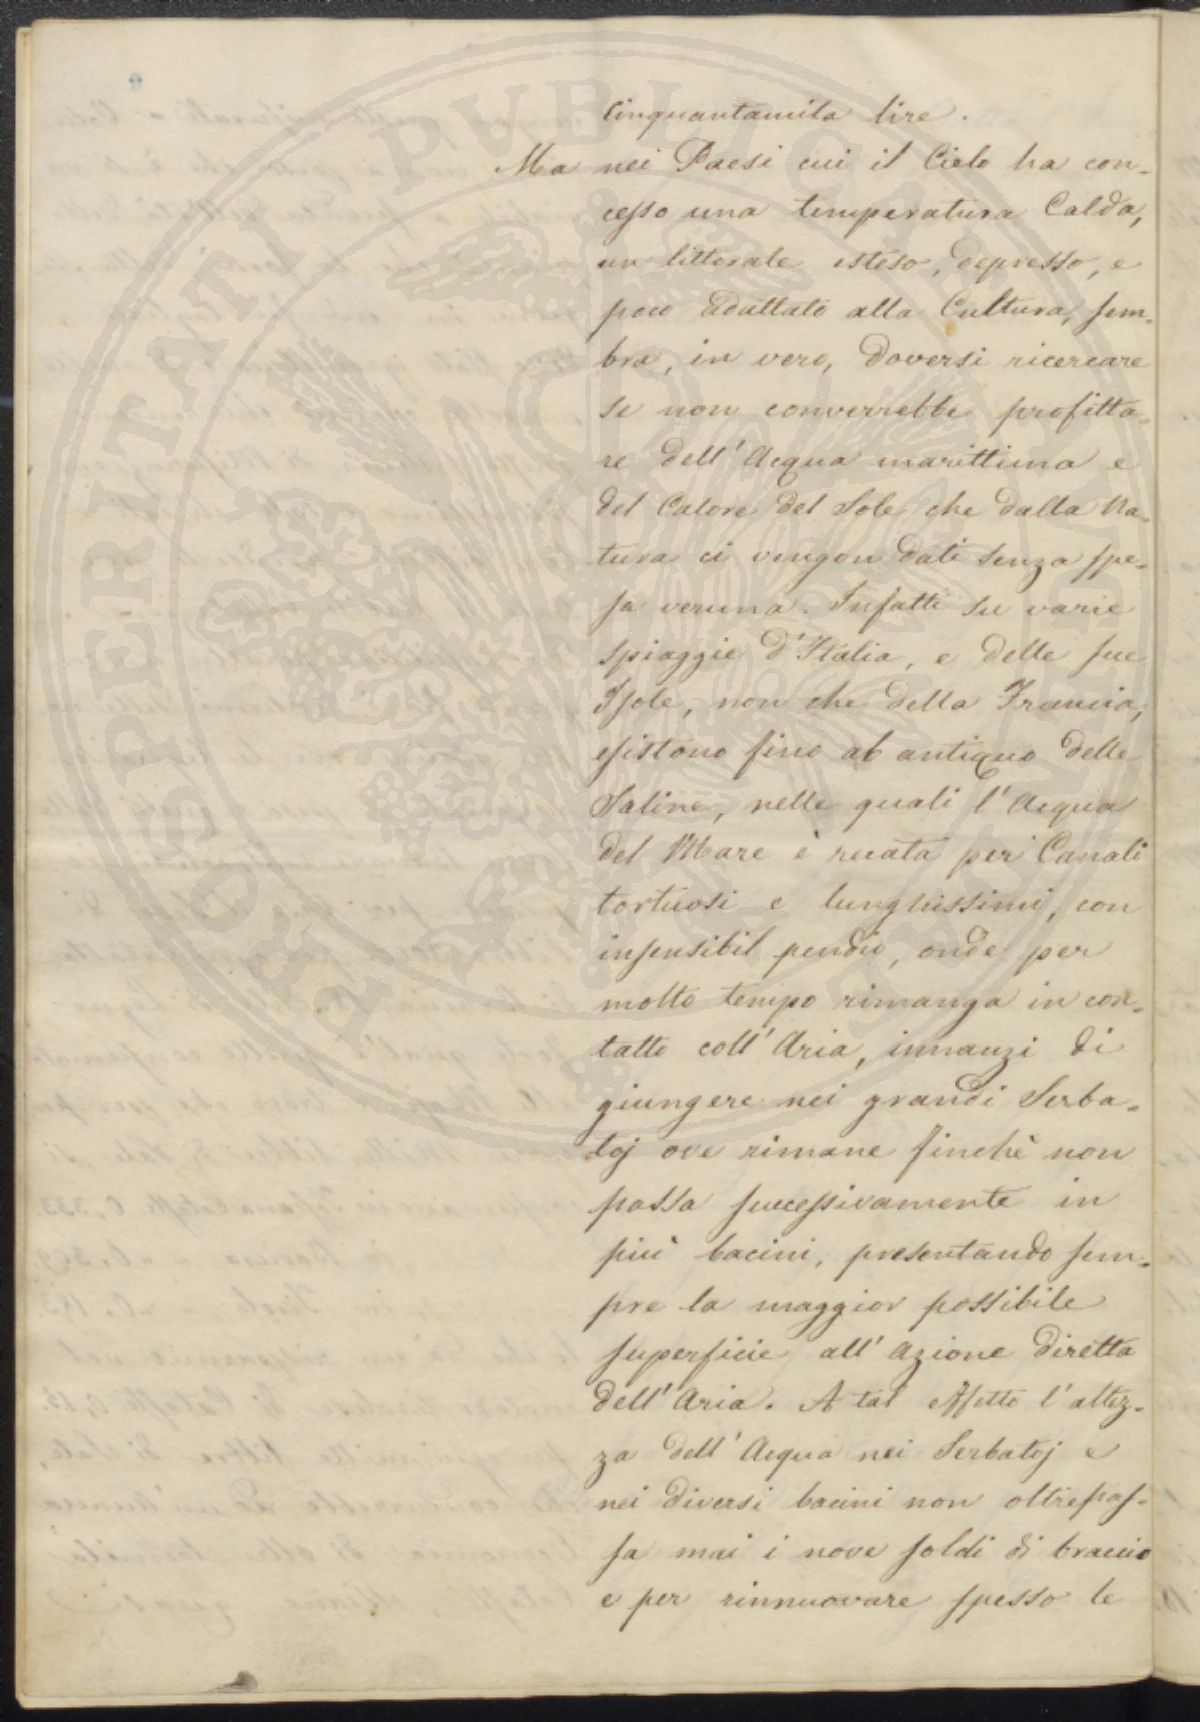 Cinquantamila lire.
Ma nei Paesi cui il Cielo ha con=
cesso una temperatura Calda,
un littorale esteso, depresso, e
poco adattato alla Cultura, sem=
bra, in vero, doversi ricercare
se non converrebbe profitta=
re dell'Acqua marittima e
del Calore del Sole che dalla Na=
tura ci vengon dati senza spe=
sa veruna. Infatti su varie
spiaggie d'Italia, e delle sue
Isole, non che della Francia,
esistono fino ab antiquo delle
Saline, nelle quali l'Acqua
del Mare è recata per Canali
tortuosi e lunghissimi, con
insensibil pendio, onde per
molto tempo rimanga in con=
tatto coll'Aria, innanzi di
giungere nei grandi Serba=
toj ove rimane finchè non
passa successivamente in
più bacini, presentando sem=
pre la maggior possibile
superficie all'Azione diretta
dell'Aria. A tal effetto l'altez=
za dell'Acqua nei Serbatoj e
nei diversi bacini non oltrepas=
sa mai i nove soldi di braccio
e per rinnuovare spesso le
PROSPERITATI PUBLICAE